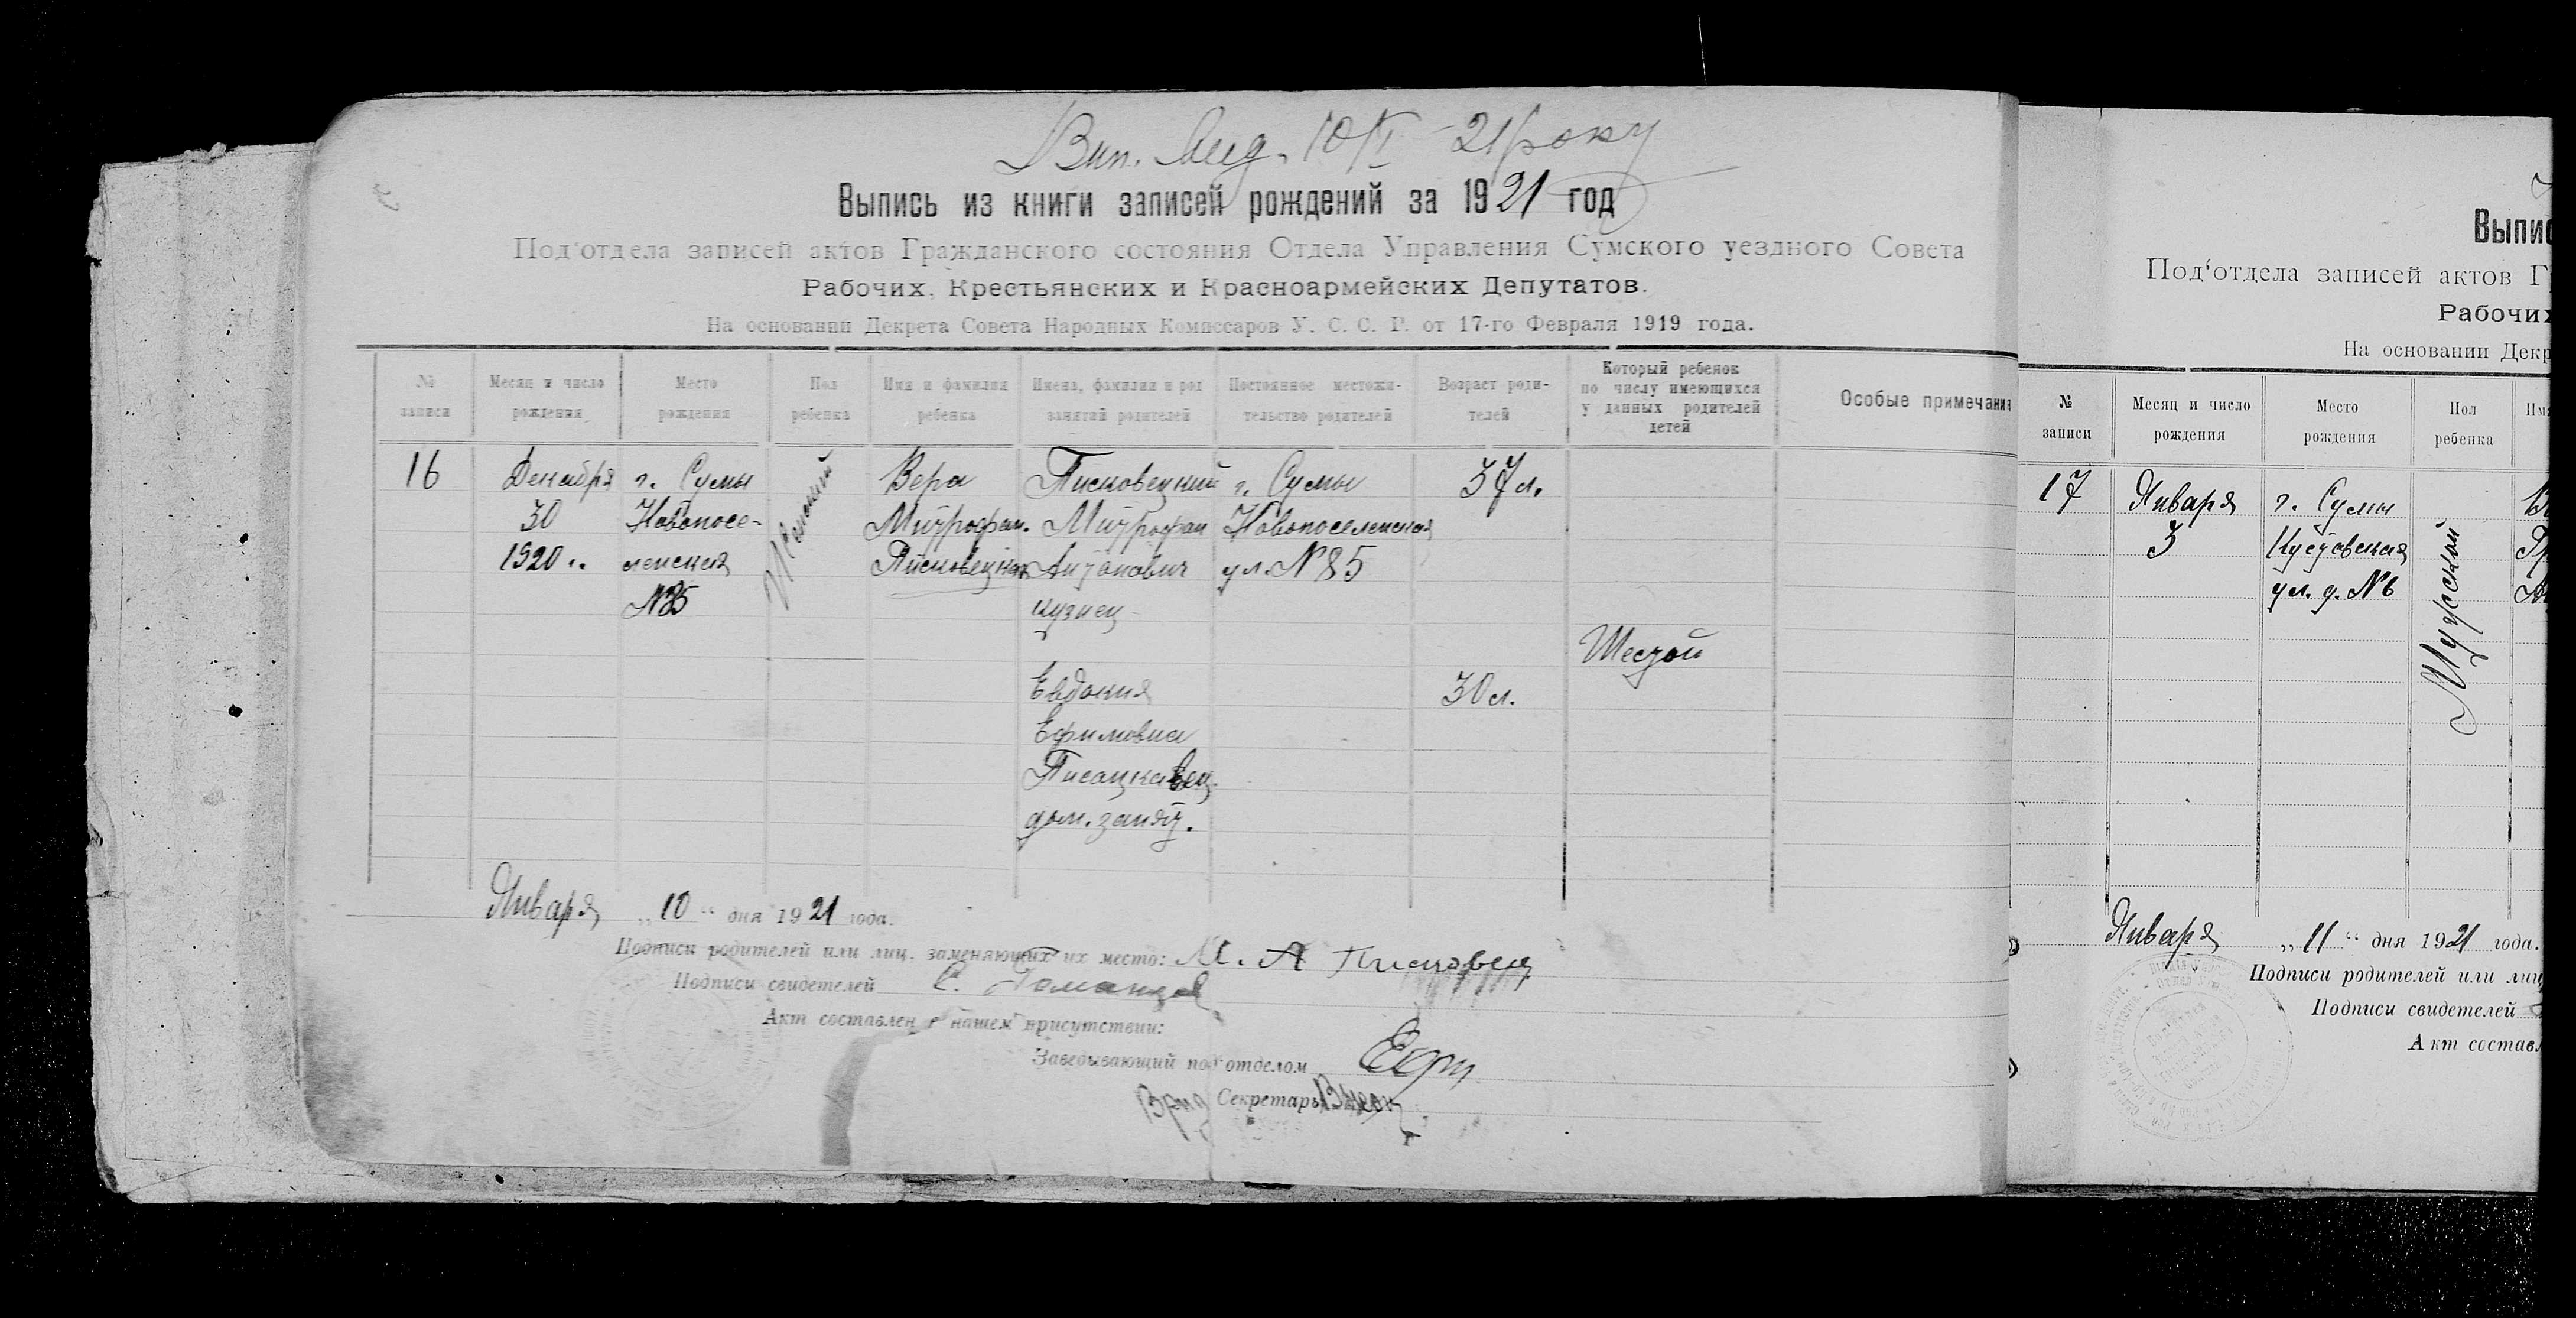 Вип. вид. 10/I - 21 року
Выпись из книги записей рождений за 1921 год
Под'отдела записей актов Гражданского состояния Отдела Управления Сумского уездного Совета
Рабочих, Крестьянских и Красноармейских Депутатов.
На основании Декрета Совета Народных Комиссаров У. С. С. Р. от 17-го Февраля 1919 года.
№
записи
Месяц и число
рождения
Место
рождения
Пол
ребенка
Имя и фамилия
ребенка
Имена, фамилии и род
занятий родителей
Постоянное местожи-
тельство родителей
Возраст роди-
телей
Который ребенок
по числу имеющихся
у данных родителей
детей
Особые примечания
16
Декабря
30
1920 г.
г. Сумы
Новопосе-
ленская
№85
Женский
Вера
Митрофан.
Писковецкая
Писковецкий
Митрофан
Антонович
кузнец
Евдокия
Ефимовна
дом. занят.
г. Сумы
Новопоселенская
ул. №85
37 л.
30 л.
Шестой
Января „10“ дня 1921 года.
Подписи родителей или лиц, заменяющих их место: М. А
Подписи свидетелей С. Романцов
Акт составлен в нашем присутствии:
Заведывающий под'отделом
Врид Секретарь
Выпис
Под'отдела записей актов Г
Рабочих
На основании Декр
№
записи
Месяц и число
рождения
Место
рождения
Пол
ребенка
Имя
17
Января
3
г. Сумы
ул. д. №6
Мужской
Января „11“ дня 1921 года.
Подписи родителей или лиц
Подписи свидетелей
Акт составл